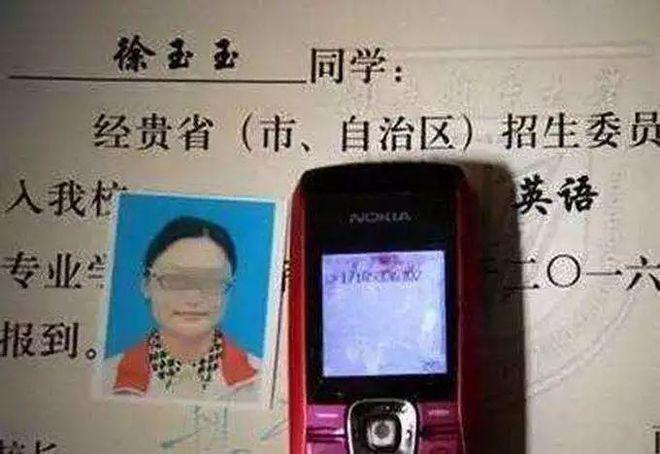 徐玉玉 同学：
经贵省（市、自治区）招生委员
入我校
英语
NOKIA
专业学
二〇一六
报到。